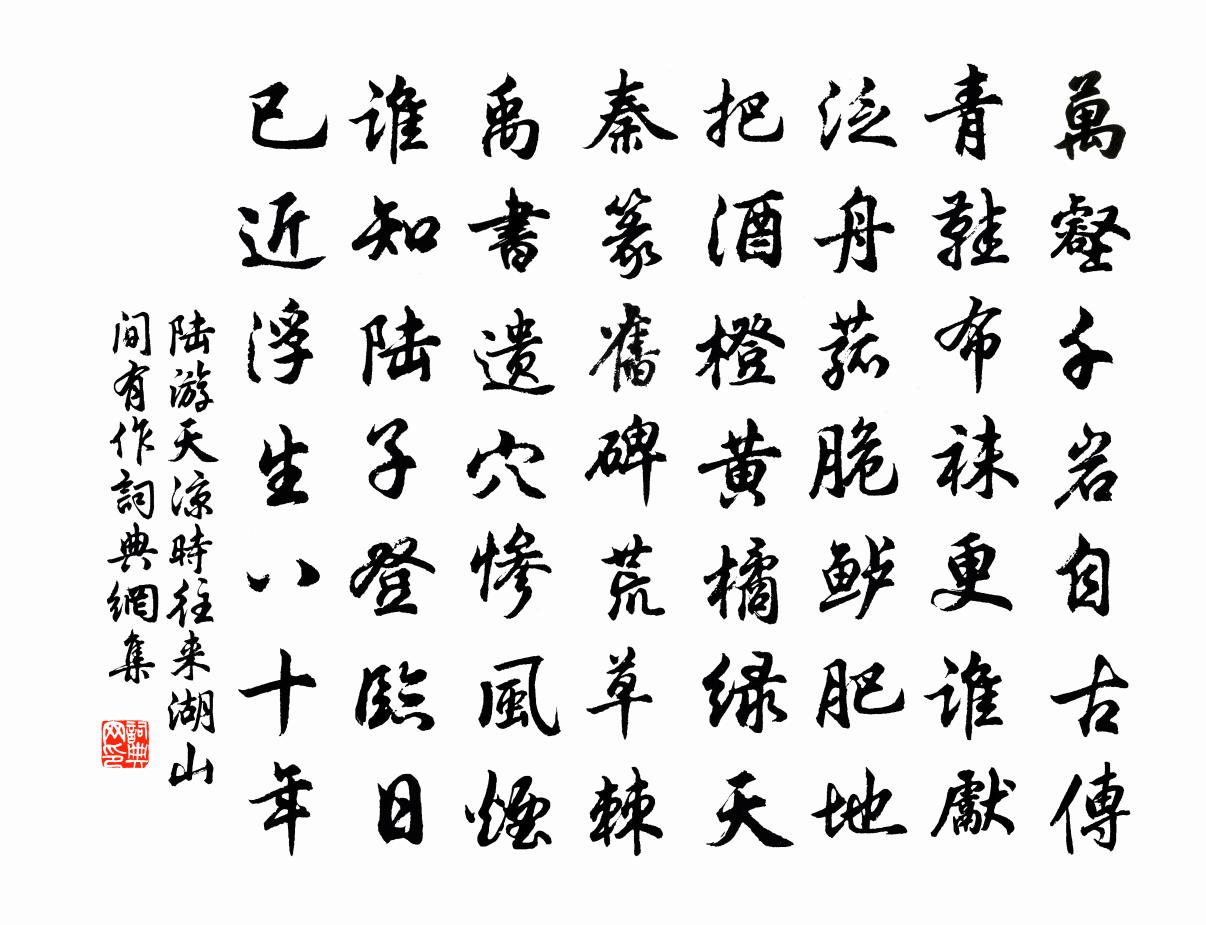 萬壑千岩自古傳
青鞋布袜更誰獻
泛舟菰脆鲈肥地
把酒橙黃橘緑天
秦篆舊碑荒草棘
禹書遺穴慘風煙
誰知陆子登臨日
已近浮生八十年
陆游天凉時往来湖山
间有作詞典網集
詞典
网印